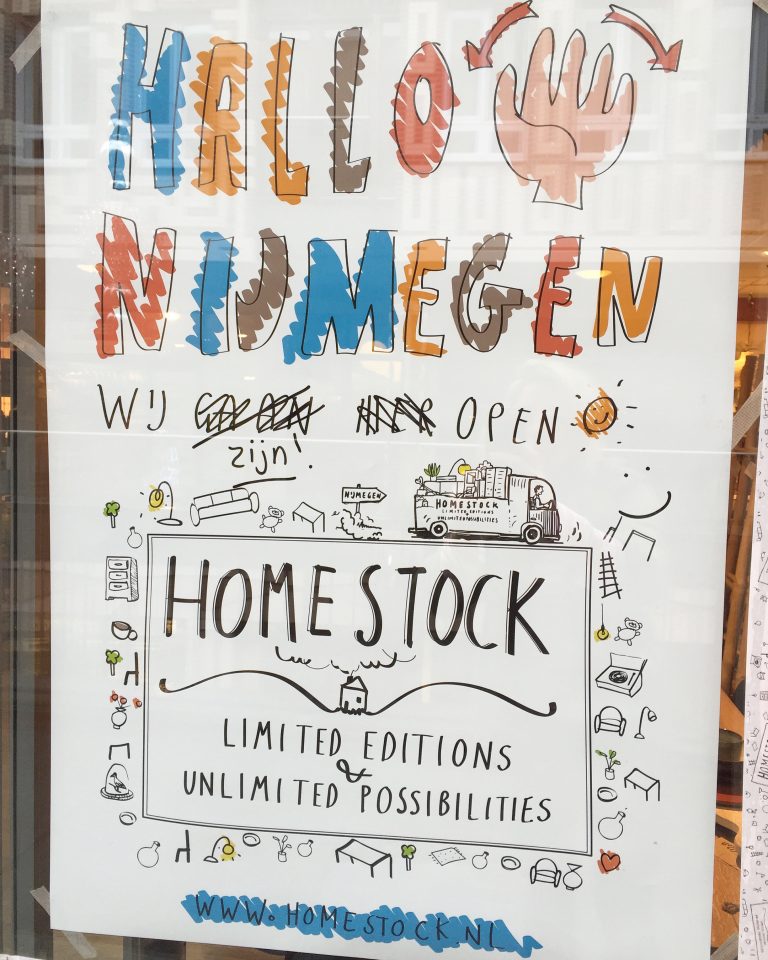 HALLO
NIJMEGEN
WIJ OPEN
zijn!
NIJMEGEN
HOMESTOCK
LIMITED EDITIONS
UNLIMITED POSSIBILITIES
HOMESTOCK
LIMITED EDITIONS
&
UNLIMITED POSSIBILITIES
WWW.HOMESTOCK.NL